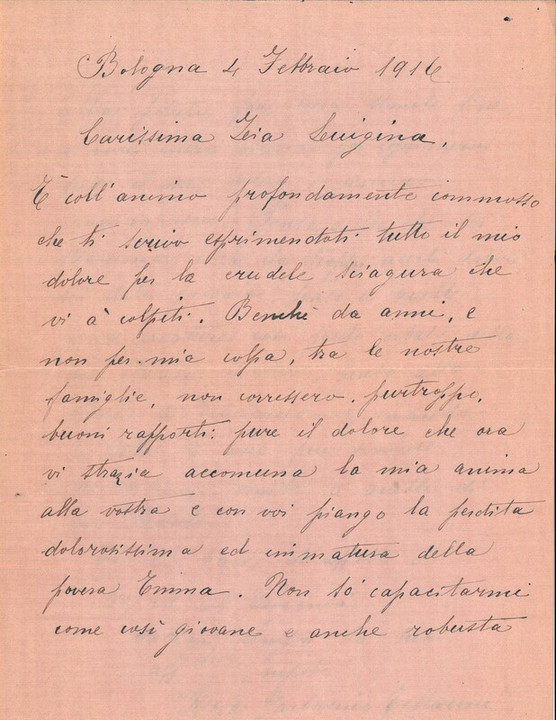 Bologna 4 Febbraio 1916
Carissima Zia Luigina,
È coll'animo profondamente commosso
che ti scrivo esprimendoti tutto il mio
dolore per la crudele sciagura che
vi à colpiti. Benchè da anni, e
non per mia colpa, tra le nostre
famiglie, non corressero, purtroppo,
buoni rapporti: pure il dolore che ora
vi strazia accomuna la mia anima
alla vostra e con voi piango la perdita
dolorosissima ed immatura della
povera Emma. Non so capacitarmi
come così giovane e anche robusta